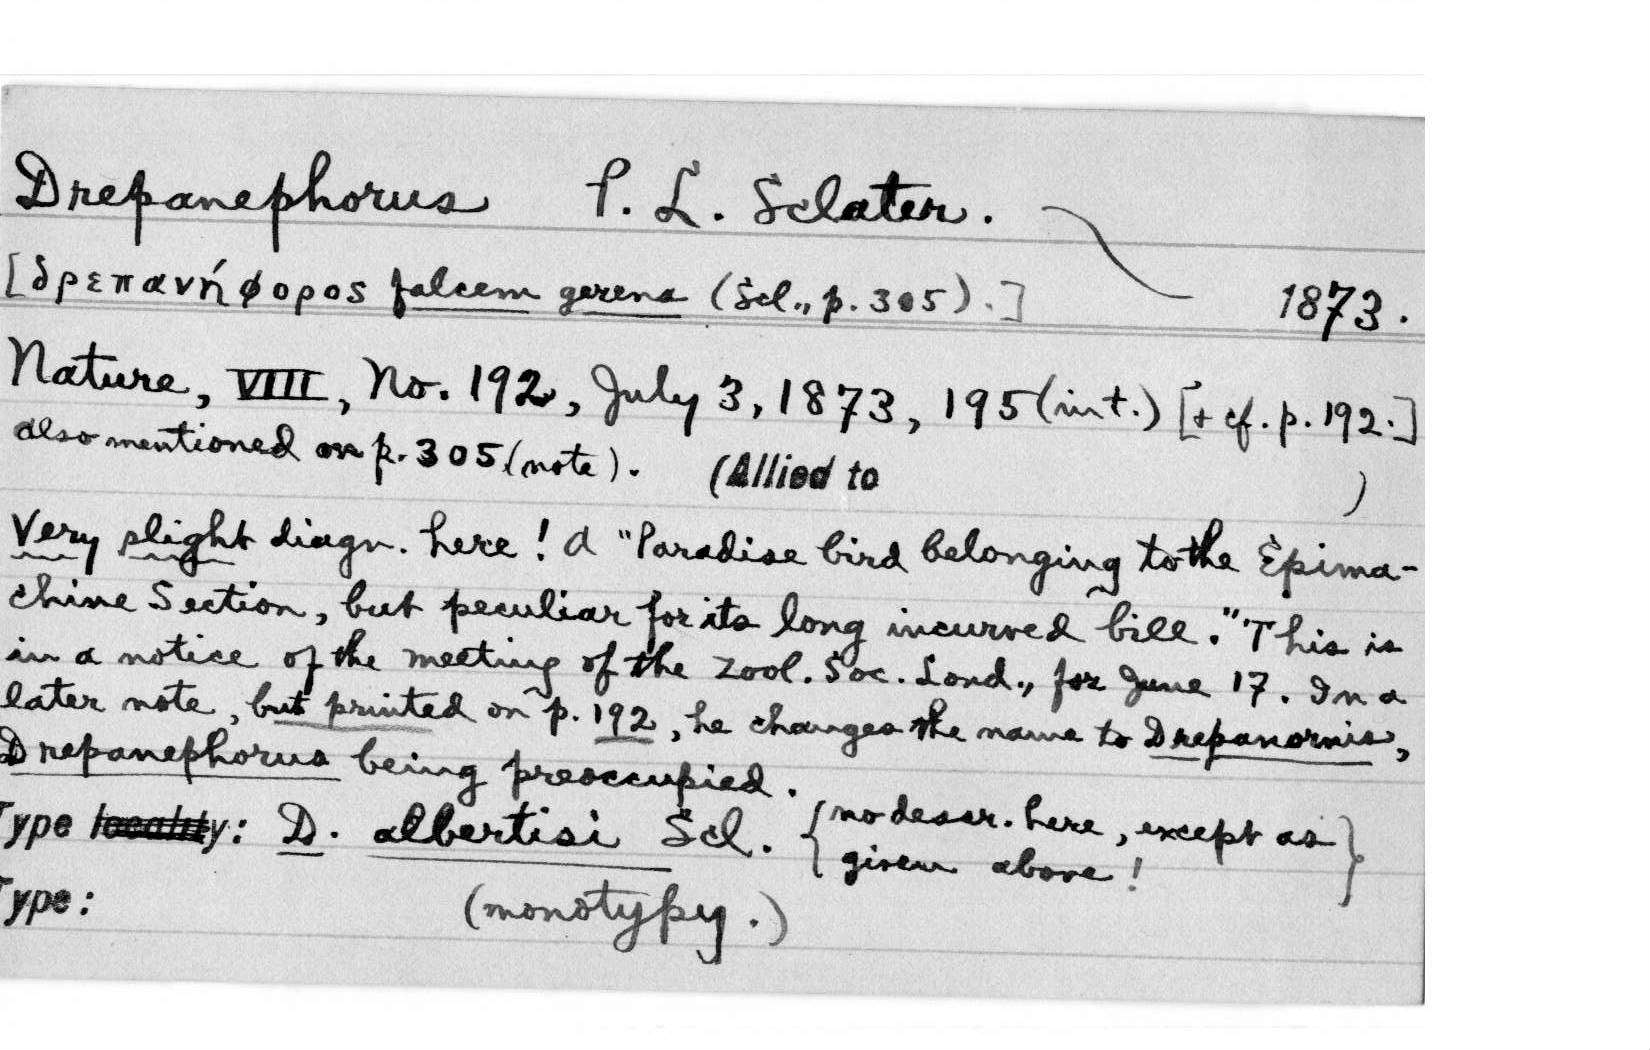 Drepanephorus P. L. Sclater.
[δρεπανήφορος falcem gerens (Scl., p. 305).] 1873.
Nature, VIII, No. 192, July 3, 1873, 195 (int.) [+ cf. p. 192.]
also mentioned on p. 305 (note). (Allied to )
Very slight diagn. here! A "Paradise bird belonging to the Epima-
chine Section, but peculiar for its long incurved bill." This is
in a notice of the meeting of the Zool. Soc. Lond., for June 17. In a
later note, but printed on p. 192, he changes the name to Drepanornis,
Drepanephorus being preoccupied.
Type locality: D. albertisi Scl. {no descr. here, except as
given above!}
Type: (monotypy.)